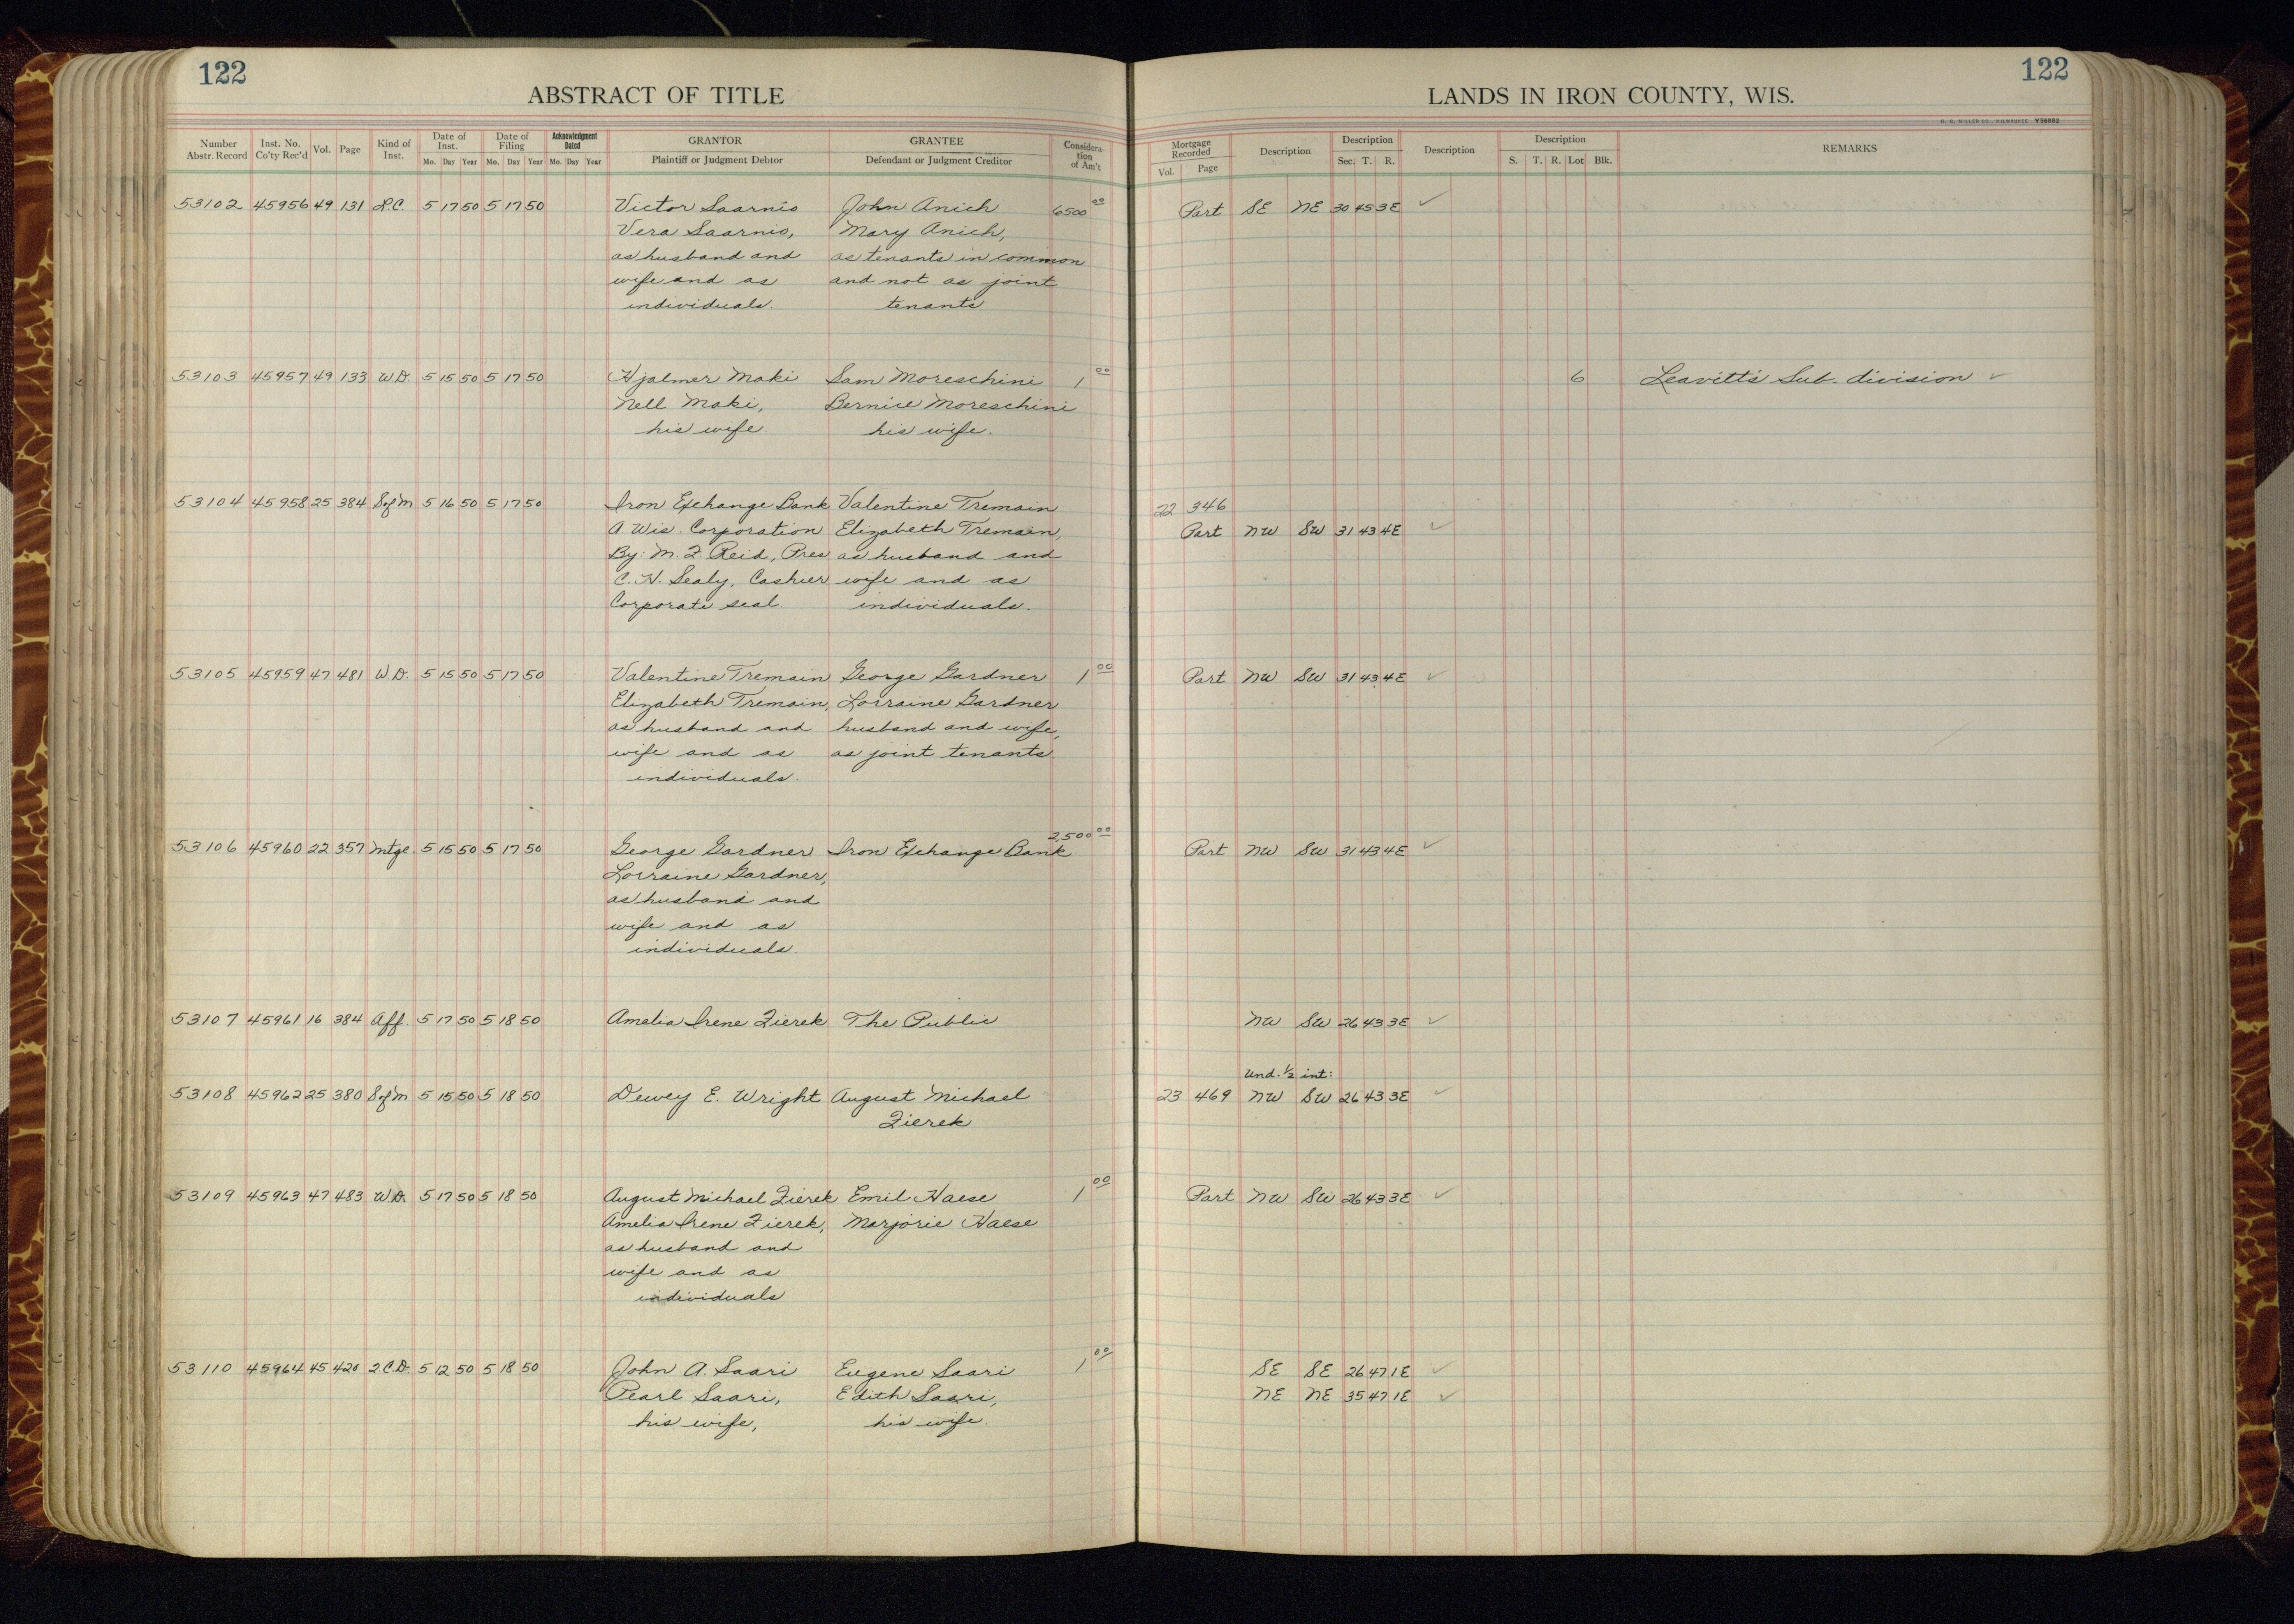 122
ABSTRACT OF TITLE
Number Abstr. Record Inst. No. Co'ty Rec'd Vol. Page Kind of Inst. Date of Inst. Mo. Day Year Date of Filing Mo. Day Year Acknowledgment Dated Mo. Day Year GRANTOR Plaintiff or Judgment Debtor GRANTEE Defendant or Judgment Creditor Considera-tion of Am't
122
LANDS IN IRON COUNTY, WIS.
H. C. MILLER CO., MILWAUKEE Y56882
Mortgage Recorded Vol. Page Description Description Sec. T. R. Description Description S. T. R. Lot Blk. REMARKS
53102 45956 49 131 L.C. 5 17 50 5 17 50 Victor Saarnio John Anich 6500 00 Part SE NE 30 45 3E ✓
Vera Saarnio, Mary Anich,
as husband and as tenants in common
wife and as and not as joint
individuals. tenants
53103 45957 49 133 W.D. 5 15 50 5 17 50 Hjalmer Maki Sam Moreschini 1 00 6 Leavitt's Sub-division ✓
Nell Maki, Bernice Moreschini
his wife. his wife.
53104 45958 25 384 S of M 5 16 50 5 17 50 Iron Exchange Bank Valentine Tremain 22 346
A Wis. Corporation Elizabeth Tremain, Part NW SW 31 43 4E ✓
By: M. F. Reid, Pres as husband and
C. H. Sealy, Cashier wife and as
Corporate seal individuals.
53105 45959 47 481 W.D. 5 15 50 5 17 50 Valentine Tremain George Gardner 1 00 Part NW SW 31 43 4E ✓
Elizabeth Tremain, Lorraine Gardner
as husband and husband and wife,
wife and as as joint tenants.
individuals.
2500 00
53106 45960 22 357 Mtge. 5 15 50 5 17 50 George Gardner Iron Exchange Bank Part NW SW 31 43 4E ✓
Lorraine Gardner,
as husband and
wife and as
individuals.
53107 45961 16 384 Aff. 5 17 50 5 18 50 Amelia Irene Zierek The Public NW SW 26 43 3E ✓
Und. 1/2 int:
53108 45962 25 380 S of M 5 15 50 5 18 50 Dewey E. Wright August Michael 23 469 NW SW 26 43 3E ✓
Zierek
53109 45963 47 483 W.D. 5 17 50 5 18 50 August Michael Zierek Emil Haese 1 00 Part NW SW 26 43 3E ✓
Amelia Irene Zierek, Marjorie Haese
as husband and
wife and as
individuals
53110 45964 45 420 2.C.D. 5 12 50 5 18 50 John A. Saari Eugene Saari 1 00 SE SE 26 47 1E ✓
Pearl Saari, Edith Saari, NE NE 35 47 1E ✓
his wife, his wife.